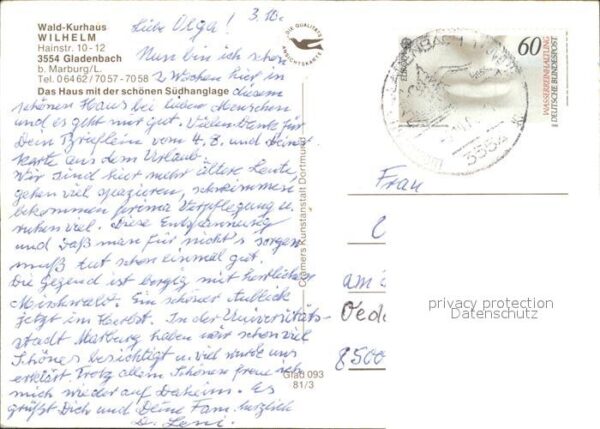 Wald-Kurhaus
WILHELM
Hainstr. 10-12
3554 Gladenbach
b. Marburg/L.
Tel. 06462/7057-7058
Das Haus mit der schönen Südhanglage
DIE QUALITÄTS
ANSICHTSKARTE
Liebe Olga! 3.10.
Nun bin ich schon
2 Wochen hier in
diesem
schönen Haus bei lieben Menschen
und es geht mir gut. Vielen Dank für
Dein Brieflein vom 4.8. und Deine
karte aus dem Urlaub.
Wir sind hier mehr ältere Leute,
gehen viel spazieren, schwimmen
bekommen prima Verpflegung u.
ruhen viel. Diese Entspannung
und daß man für nicht's sorgen
muß tut schon einmal gut.
Die Gegend ist bergig mit herrlichem
Mischwald. Ein schöner Anblick
jetzt im Herbst. In der Universitäts-
stadt Marburg haben wir schon viel
Schönes besichtigt u. viel wurde uns
erklärt. Trotz allem Schönen freue ich
mich wieder auf Daheim. Es
grüßt Dich und Deine Fam. herzlich
D. Leni.
Cramers Kunstanstalt Dortmund
Glad 093
81/3
60
EUROPA
WASSERREINHALTUNG
DEUTSCHE BUNDESPOST
3554
Frau
am
8500
privacy protection
Datenschutz